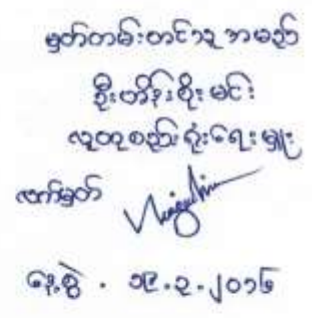 မှတ်တမ်းတင်သူ အမည်
ဦးတိုးစိုးမင်း
လူထုစည်းရုံးရေးမှူး
လက်မှတ်
နေ့စွဲ . ၁၉.၃.၂၀၁၆